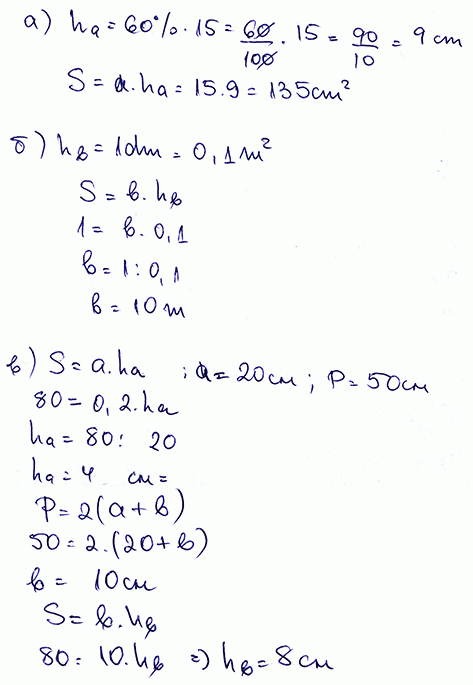 а) hₐ = 60% . 15 = 60/100 . 15 = 90/10 = 9 cm
S = a.hₐ = 15.9 = 135 cm²
б) h_b = 1dm = 0,1m²
S = b. h_b
1 = b. 0,1
b = 1 : 0,1
b = 10 m
в) S = a.hₐ ; a = 20 см ; P = 50 см
80 = 0,2.hₐ
hₐ = 80 : 20
hₐ = 4 см =
P = 2(a + b)
50 = 2.(20 + b)
b = 10 см
S = b.h_b
80 = 10.h_b => h_b = 8 см